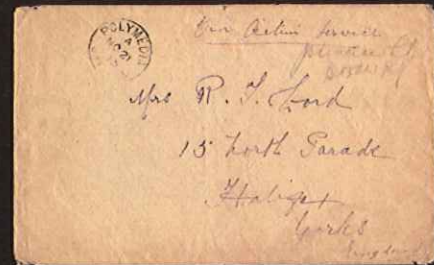 POLYMEDIA
A
NO 21
On Active Service
Mrs R. T. Lord
15 North Parade
Halifax
Yorks
England